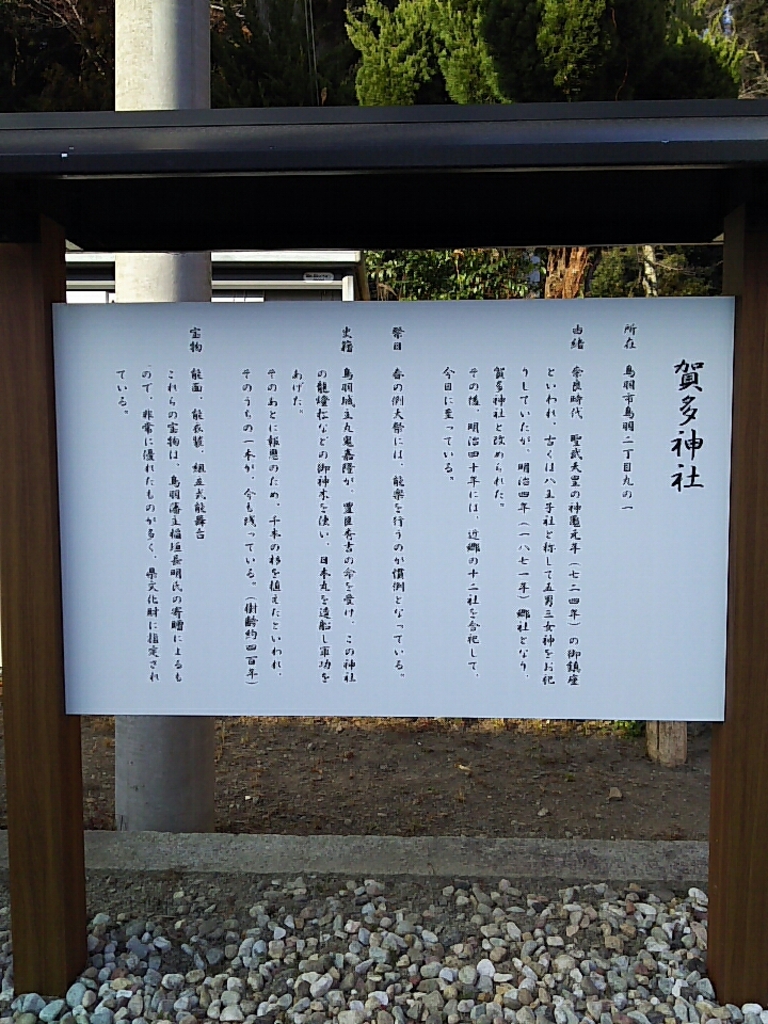 賀多神社
所在　鳥羽市鳥羽二丁目九の一
由緒　奈良時代　聖武天皇の神亀元年（七二四年）の御鎮座
といわれ、古くは八王子社と称して五男三女神をお祀
りしていたが、明治四年（一八七一年）郷社となり、
賀多神社と改められた。
その後、明治四十年には、近郷の十二社を合祀して、
今日に至っている。
祭日　春の例大祭には、能楽を行うのが慣例となっている。
史籍　鳥羽城主九鬼嘉隆が、豊臣秀吉の命を受け、この神社
の龍燈松などの御神木を使い、日本丸を造船し軍功を
あげた。
そのあとに報恩のため、千本の杉を植えたといわれ、
そのうちの一本が、今も残っている。（樹齢約四百年）
宝物　能面、能衣装、組立式能舞台
これらの宝物は、鳥羽藩主稲垣長明氏の寄贈によるも
ので、非常に優れたものが多く、県文化財に指定され
ている。